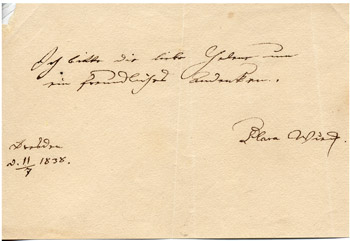 Ich bitte die liebe Geberin um
ein freundliches Andenken.
Clara Wieck.
Dresden
d. 11/7 1838.